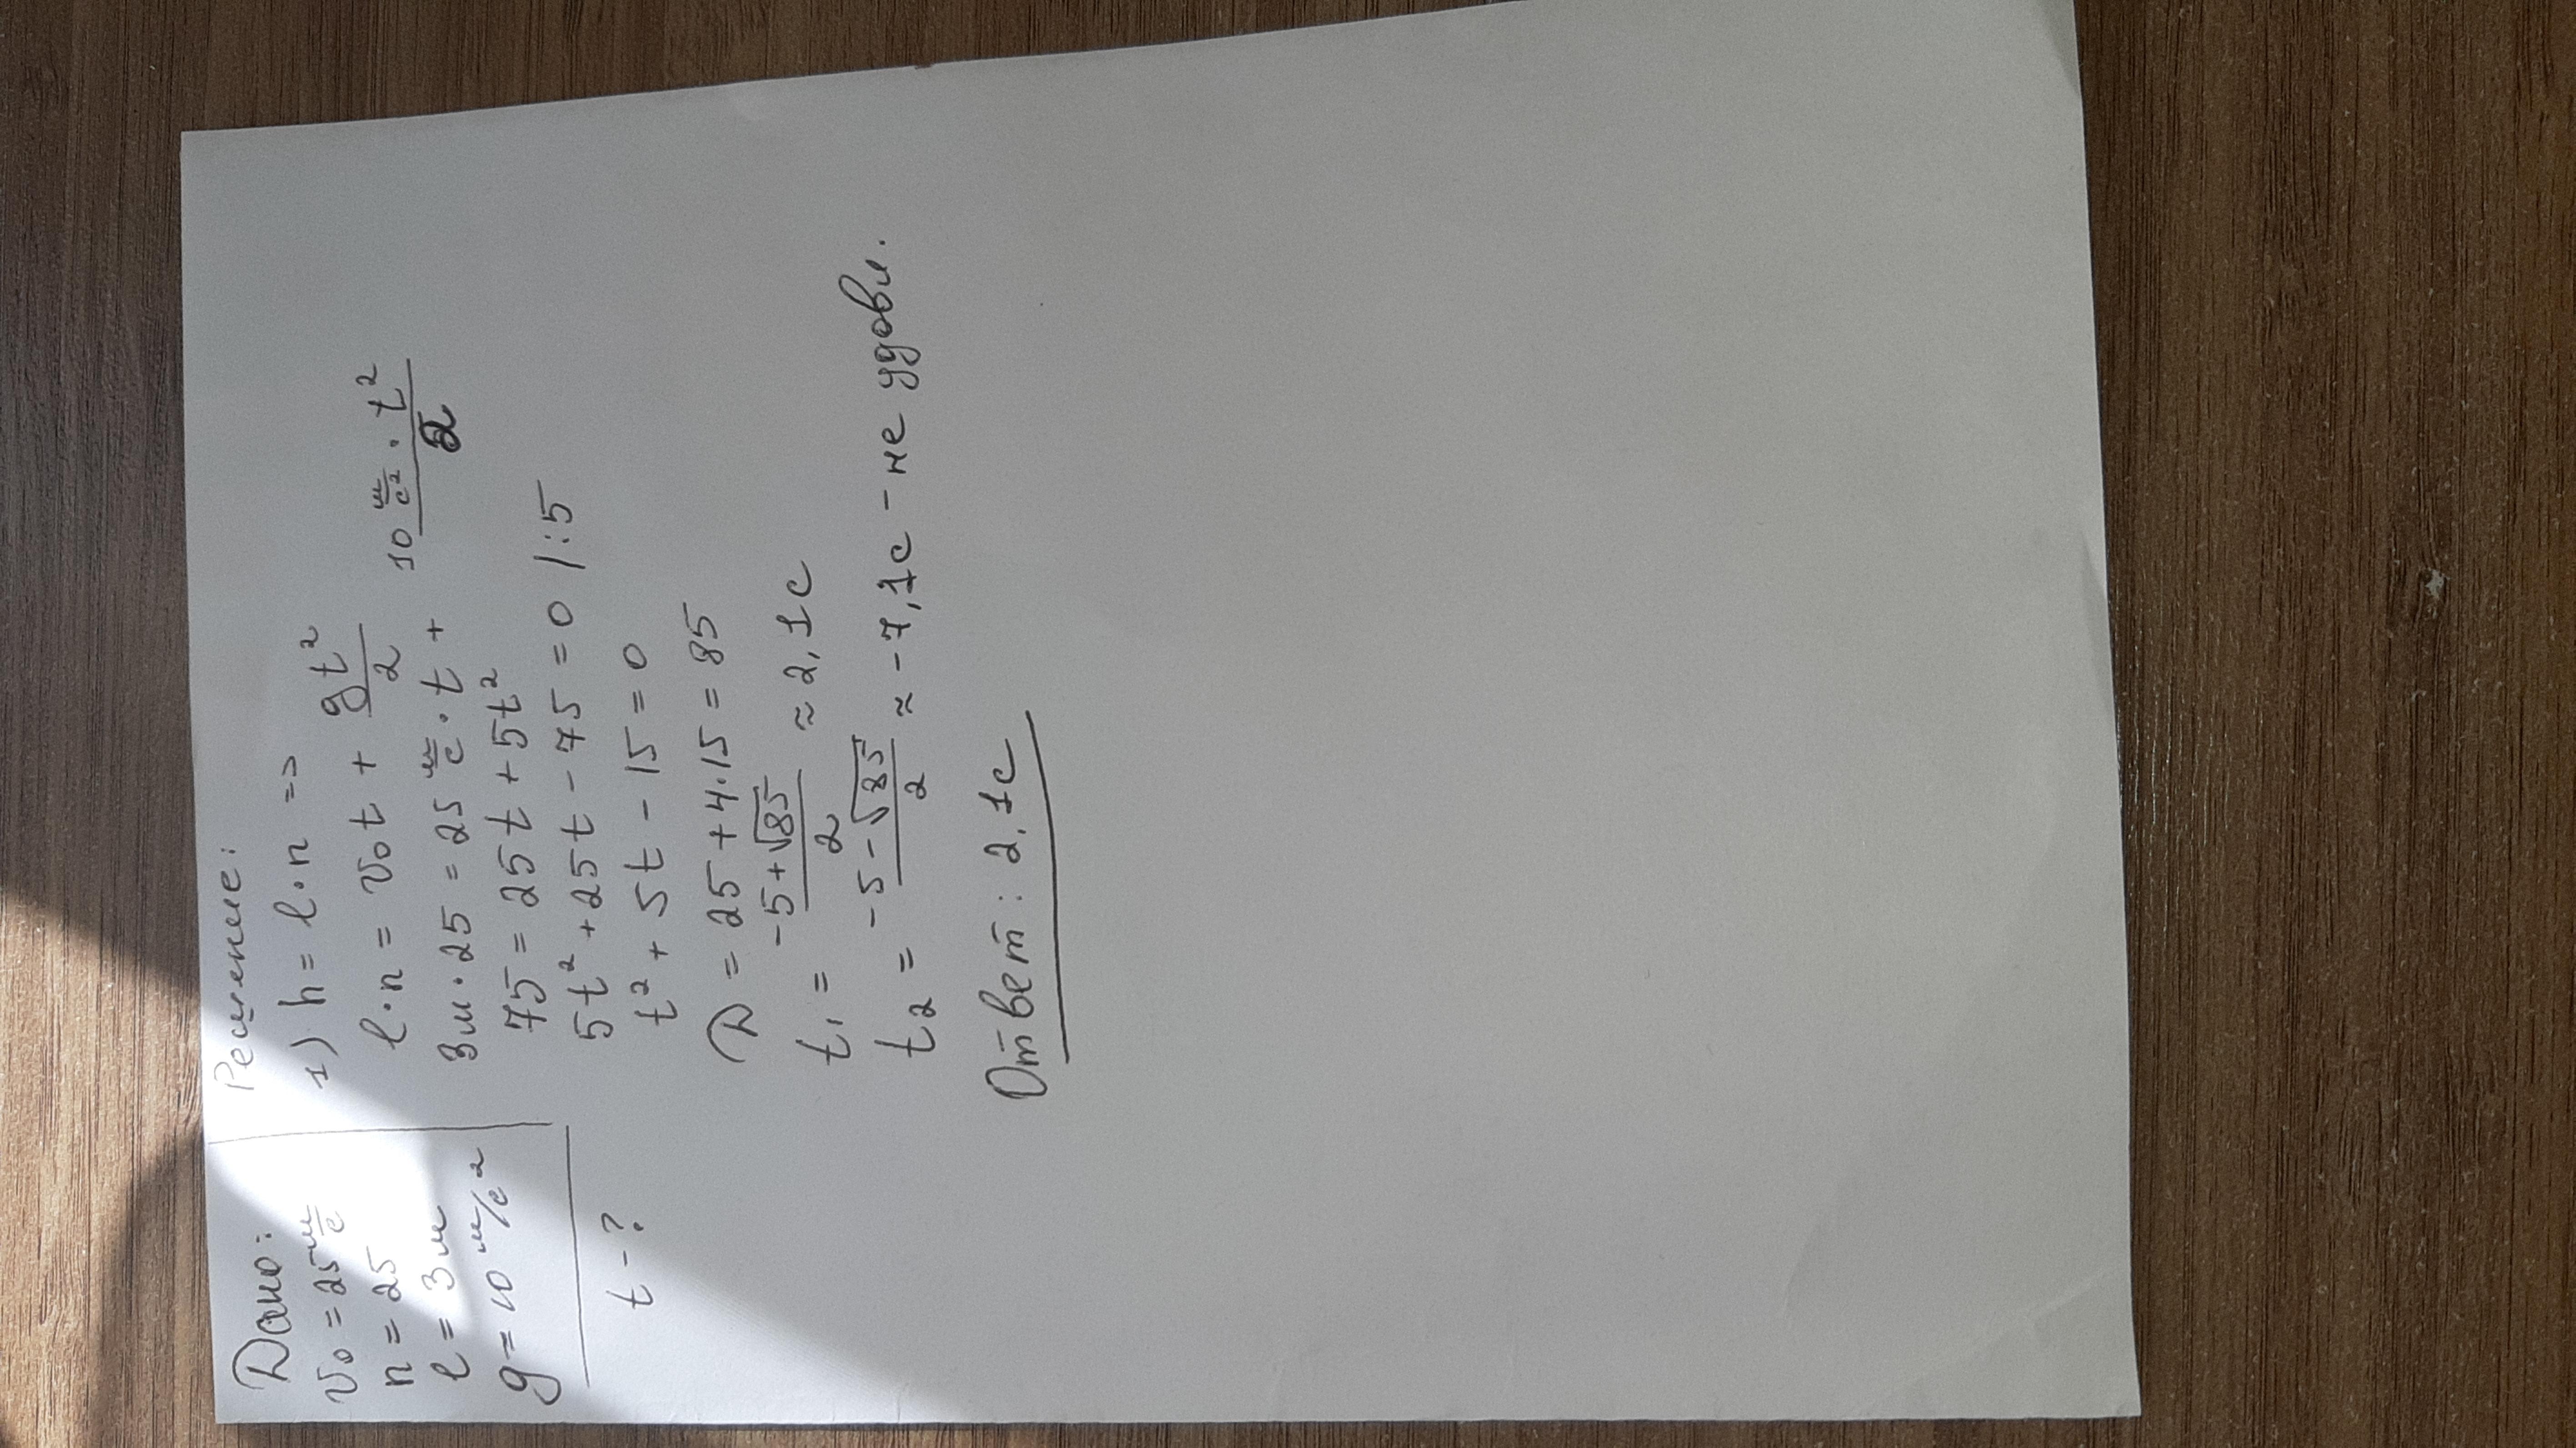 Дано:
v₀ = 25 м/с
n = 25
l = 3 м
g = 10 м/с²
t - ?
Решение:
1) h = l · n =>
l · n = v₀t + gt²/2
3м · 25 = 25 м/с · t + 10 м/с² · t²/2
75 = 25t + 5t²
5t² + 25t - 75 = 0 |:5
t² + 5t - 15 = 0
D = 25 + 4·15 = 85
t₁ = (-5+√85)/2 ≈ 2,1с
t₂ = (-5-√85)/2 ≈ -7,1с - не удовл.
Ответ: 2,1с